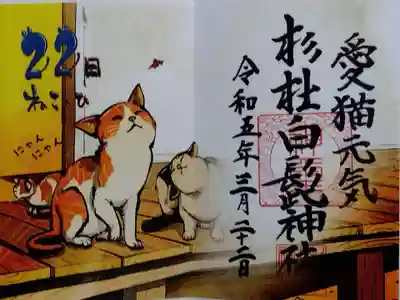 愛猫元気
杉杜白髭神社
令和五年三月二十二日
22日
ねこ
にゃん
にゃん